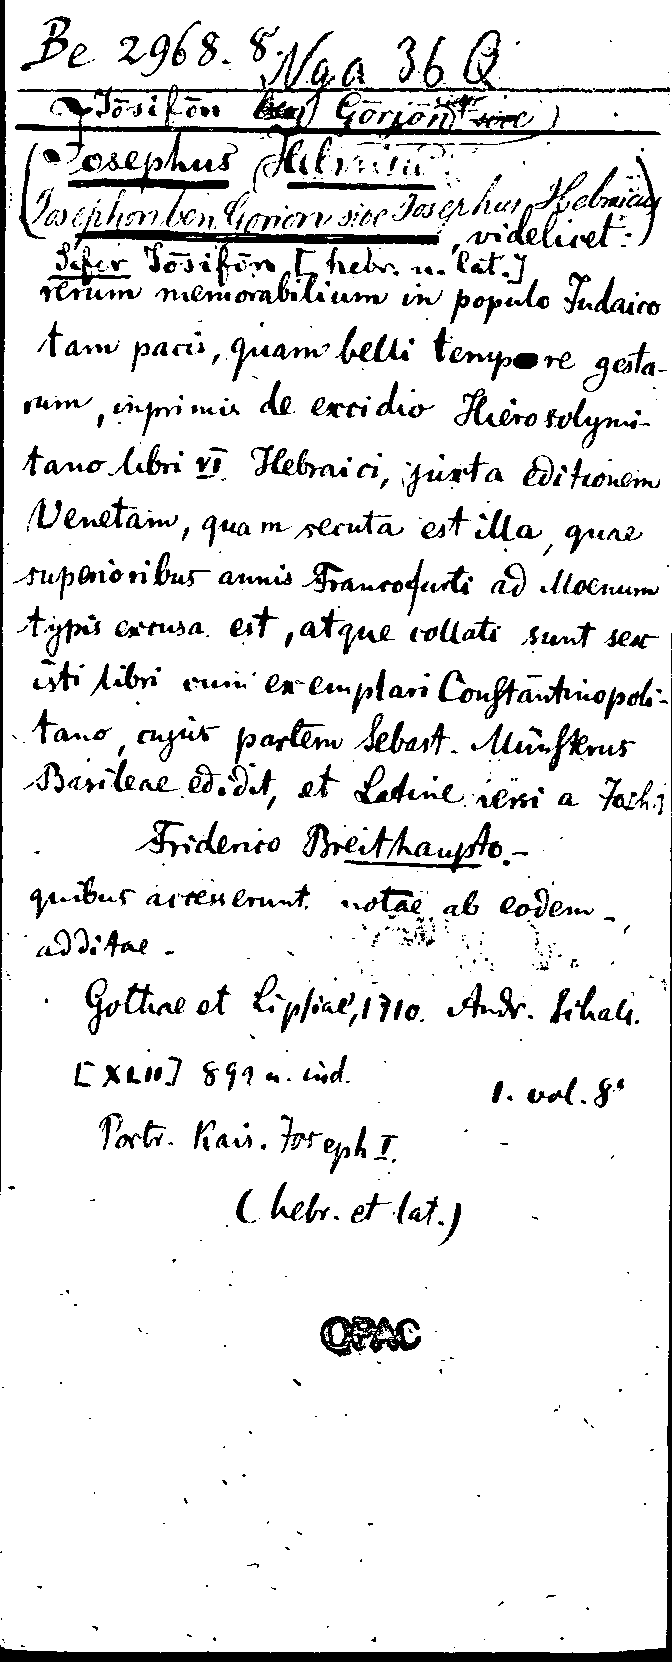 Be 2968. 8. Nga 36 Q
Jōsifōn ben Gōrjōn sive)
(Josephus Hebraicus
Josephon ben Gorion sive Josephus Hebraicus)
, videlicet:
Sēfer Jōsifōn [hebr. u. lat.]
rerum memorabilium in populo Judaico
tam pacis, quam belli tempore gesta-
rum, inprimis de excidio Hierosolymi-
tano libri VI Hebraici, juxta editionem
Venetam, quam secuta est illa, quae
superioribus annis Francofurti ad Moenum
typis excusa est, atque collati sunt sex
isti libri cum exemplari Constantinopoli-
tano, cujus partem Sebast. Münsterus
Basileae edidit, et Latine versi a Joh.
Friderico Breithaupto.-
quibus accesserunt notae ab eodem
additae -
Gothae et Lipsiae, 1710. Andr. Schall.
[XLII] 891 u. ind.
1. vol. 8°
Portr. Kais. Joseph I.
(hebr. et lat.)
OPAC